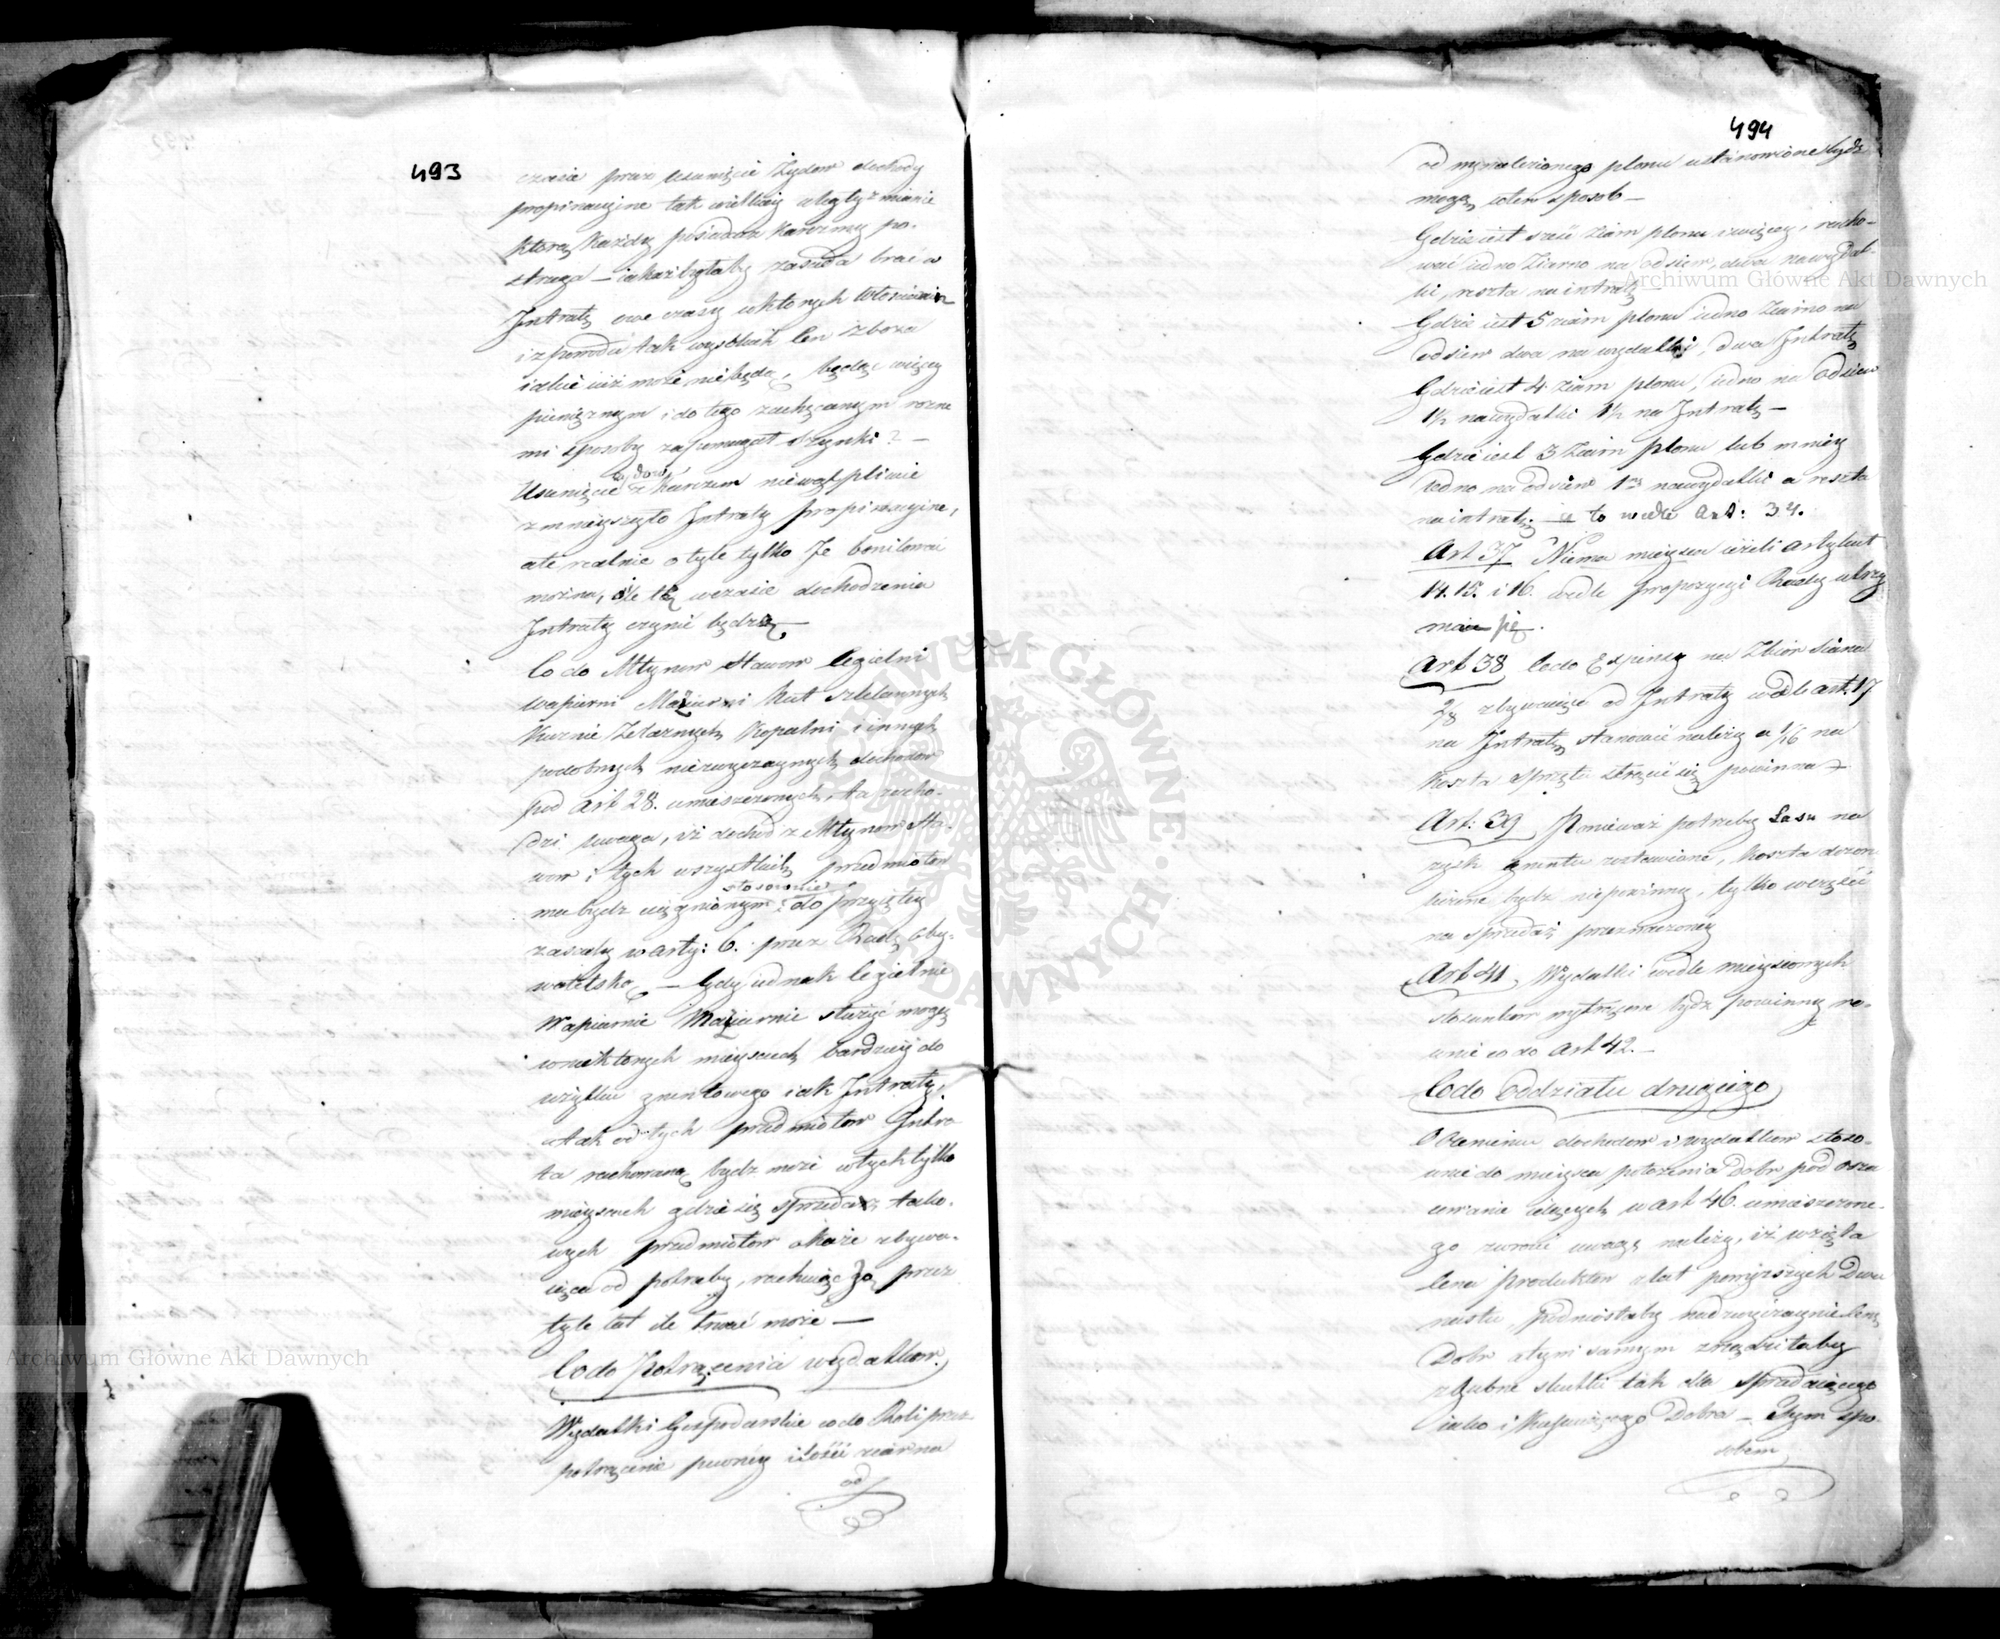 493
czasie przez usunięcie Żydów dochody
propinacyjne tak wielkiey uległy zmianie
którą każdy posiadacz karczmy po-
strzega — iakaż byłaby zasada brać w
Intratę owe czasy w których włościanin
i z powodu tak wysokich Cen zboża
iakie iuż może nie będą, będąc więcey
pieniężnym i do tego zachęcanym rożne
mi sposoby zapomagał szynki? —
żydów
Usunięcie z karczem niewątpliwie
zmnieyszyło Intraty propinacyjne,
ale realnie o tyle tylko Je bonilować
można, ile te w czasie dochodzenia
Intraty czynić będzą —
Co do Młynów Stawów Cegielni
Wapierni Maziarni Hut szklannych
Kuznic Żelaznych Kopalni i innych
podobnych niezwyczaynych dochodów
pod Art 28. umieszczonych, ta zacho-
dzi uwaga, iż dochód z Młynów Sta-
wów i tych wszystkich przedmiotów
stosownie
ma bydz ciągnionym do przyiętey
zasady w arty: 6. przez Radę Oby-
watelską — Gdy iednak Cegielnie
Wapiarnie Maziarnie służyć mogą
w niektorych mieyscach bardziey do
użytku gruntowego iak Intraty,
a tak od tych przedmiotów Intra
ta rachowaną bydz może w tych tylko
mieyscach gdzie się sprzedaż tako-
wych przedmiotów okaże zbywa-
iąca od potrzeby, rachuiąc Ją przez
tyle lat ile trwać może —
Co do Potrącenia wydatków.
Wydatki Gospodarskie co do Roli przez
potrącenie pewney ilości ziarna
od
494
od wynalezionego plonu ustanowione bydz
mogą w ten sposob —
Gdzie iest sześć ziarn plonu i więcey, racho-
wać iedno Ziarno na odsiew, dwa na wydat-
ki, reszta na intratę
Gdzie iest 5 ziarn plonu iedno Ziarno na
odsiew dwa na wydatki, dwa Intratę
Gdzie iest 4 ziarn plonu, iedno na Odsiew
1½ na wydatki 1½ na Intratę —
Gdzie iest 3 Ziarn plonu lub mniey
Jedno na odsiew 1ne na wydatki a reszta
na intratę — a to wedle Art: 34.
Art 37 Niema mieysca ieżeli artykuł
14. 15. i 16. wedle propozycyi Rady utrzy
maią się.
Art 38 Co do Expensy na Zbiór Siana
2/8 zbywaiące od Intraty wedle art. 17
na Intratę stanowić należy a 1/16 na
koszta sprzętu strącić się powinna —
Art: 39 Ponieważ potrzeby Lasu na
zysk gruntu zostawione, koszta dozor
bydz niepowinny, tylko w części
na sprzedaż przeznaczoney
Art 41 Wydatki wedle mieyscowych
stosunków wytrącone bydz powinny ró-
wnie co do Art 42. —
Co do Oddziału drugiego
Ocenieniu dochodów i wydatków stoso-
wnie do mieysca położenia Dobr pod osza
cowanie idących w art 46. umieszczone-
go zwrocić uwagę należy, iż wzięta
Cena produktów z lat pomyższych Dwu
nastu, podniosłaby nadzwyczaynie Cenę
Dobr a tym samym zrządziłaby
zgubne skutki tak dla sprzedaiącego
iako i kupuiącego Dobra — Tym spo-
sobem